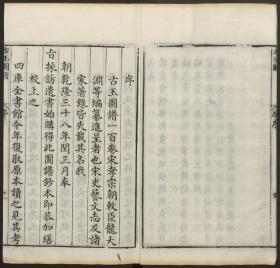 序
古玉圖譜一百卷宋孝宗朝敕臣龍大
淵等編纂進呈者也宋史藝文志及諸
家著錄皆失載其名我
朝乾隆三十八年閏三月奉
旨採訪遺書始購得此圖譜鈔本即恭加繕
校上之
四庫全書館今年復取原本讀之見其考
古玉圖譜
序